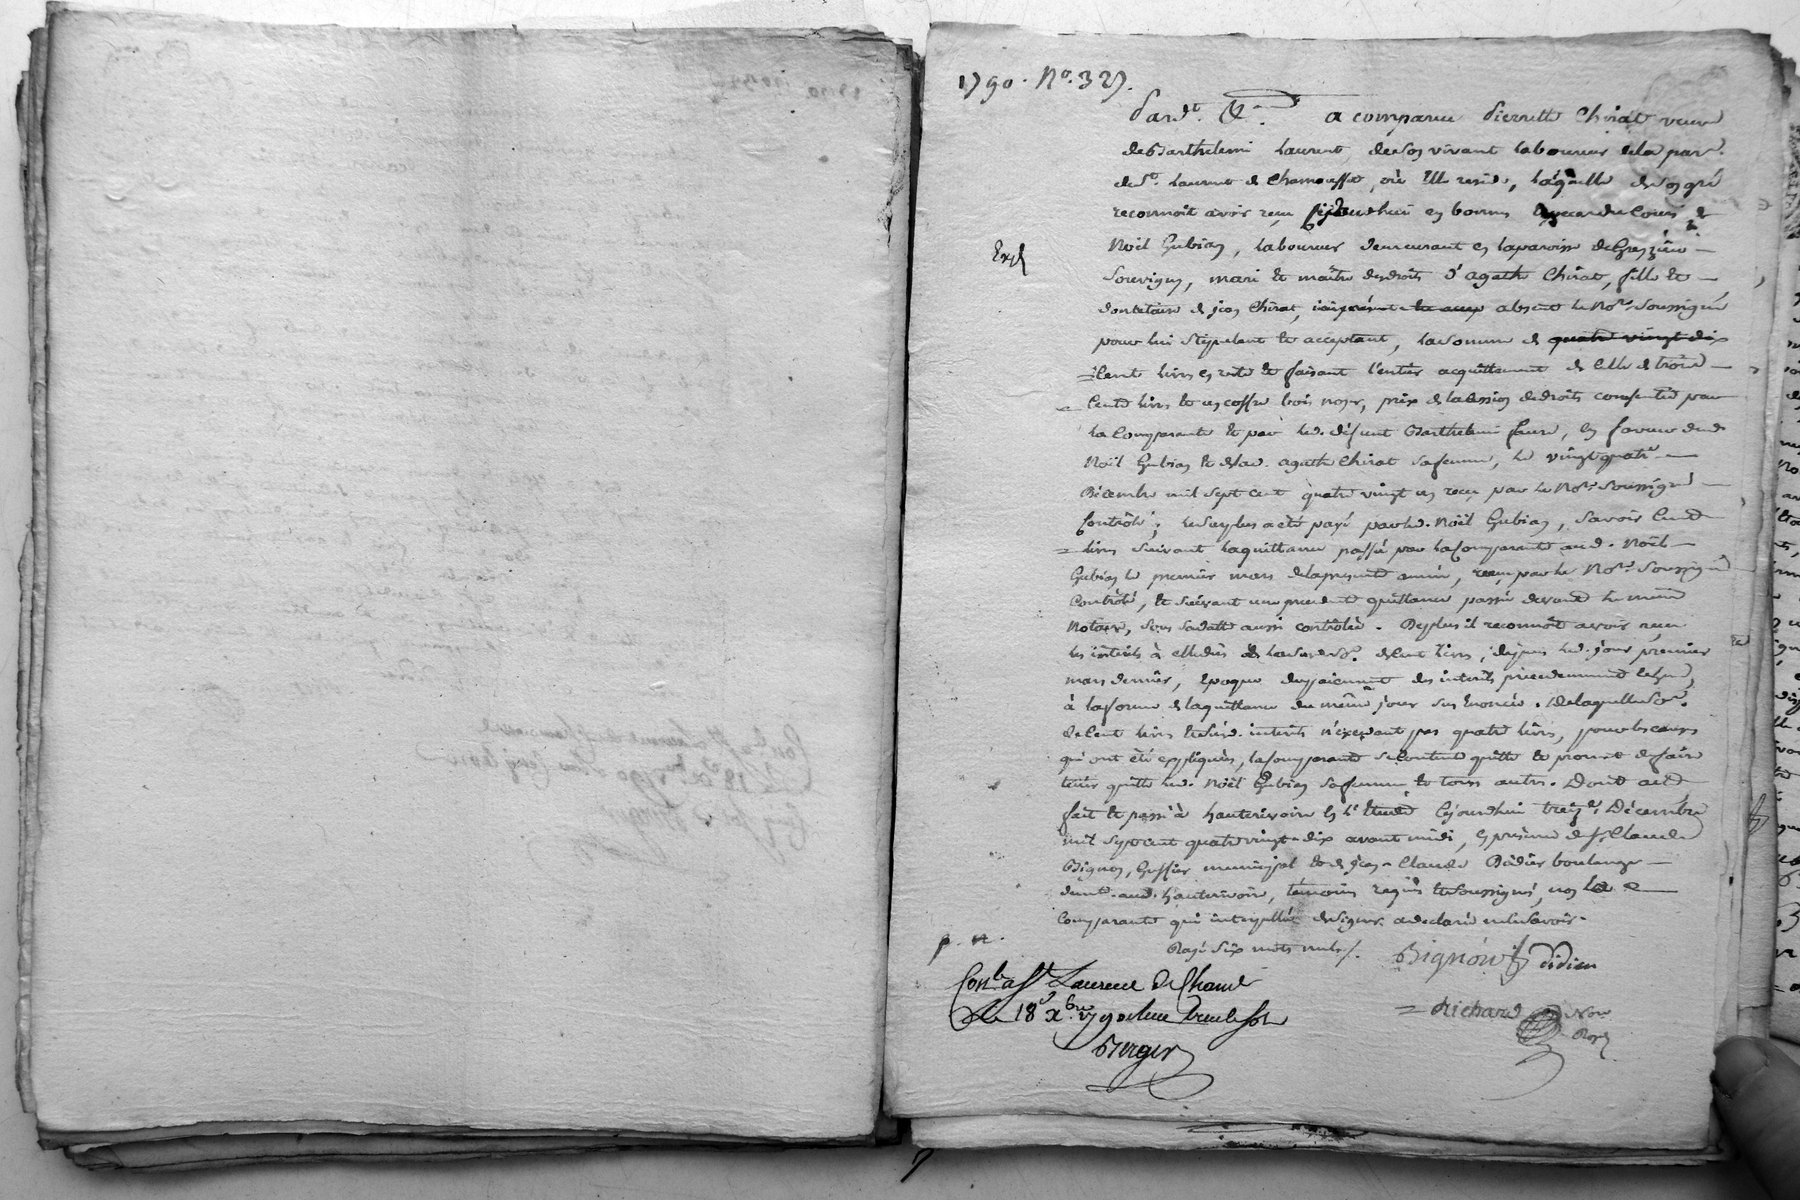 1790. N°. 327.
Pard.t &.a a comparu Pierrette Chirat veuve
de Barthelemi Laurent, de son vivant laboureur de la par.
de S.t Laurent de Chamousset, où Elle reside, laquelle de son gré
reconnoit avoir reçu cejourdhui en bonnes espèces du Cours de
Exp
Noël Gubian, laboureur demeurant en la paroisse de Grezieu
Souvigny, mari et maître des droits d'agathe Chirat, fille et
donataire de jean Chirat, absent le No.re Soussigné
pour lui stipulant et acceptant, la somme de quatre vingt dix
Cent livres en reste et faisant l'entier acquittement de Celle de trois
Cents livres et un coffre bois noyer, prix de la Cession de droits consentie par
la Comparante et par led. défunt Barthelemi, en faveur dud.
Noël Gubian et de lad. agathe Chirat sa femme, le vingt quatre
Décembre mil sept cent quatre vingt un reçu par le No.re Soussigné
Controlé; le surplus a été payé par led. Noël Gubian, savoir Cent
livres suivant la quittance passée par la Comparante aud. Noël
Gubian le premier mars de la presente année, reçue par le No.re Soussigné
Controlé, et suivant une precedente quittance passée devant le même
Notaire, sous sa datte aussi controlée. De plus il reconnoit avoir reçu
les intérêts à elle dus de lad. so.e de Cent livres, depuis led. jour premier
mars dernier, Epoque du paiement des interêts precedemment echus,
à la forme de la quittance du même jour sus Enoncée. De laquelle So.e
de Cent livres et desd. interêts n'éxcedant pas quatre livres, pour les causes
qui ont été expliquées, la Comparante se contente quitte et promet de faire
tenir quitte led. Noël Gubian sa femme et tous autres. Dont acte
fait et passé à hauterivoire En l'Etude Cejourdhui treize Décembre
mil sept cent quatre vingt-dix avant midi, En présence de Sr. Claude
Bignon, Greffier municipal et de jean-Claude Didier boulanger
dud. hauterivoire, témoins requis et soussignés, non la
Comparante qui interpellée de signer a declaré ne le savoir.
Rayé six mots nuls.
Bignon Didier
Con.lé a S.t Laurent de Cham.
Le 18 X.bre 1790
Richard No.re
Roy.
Berger